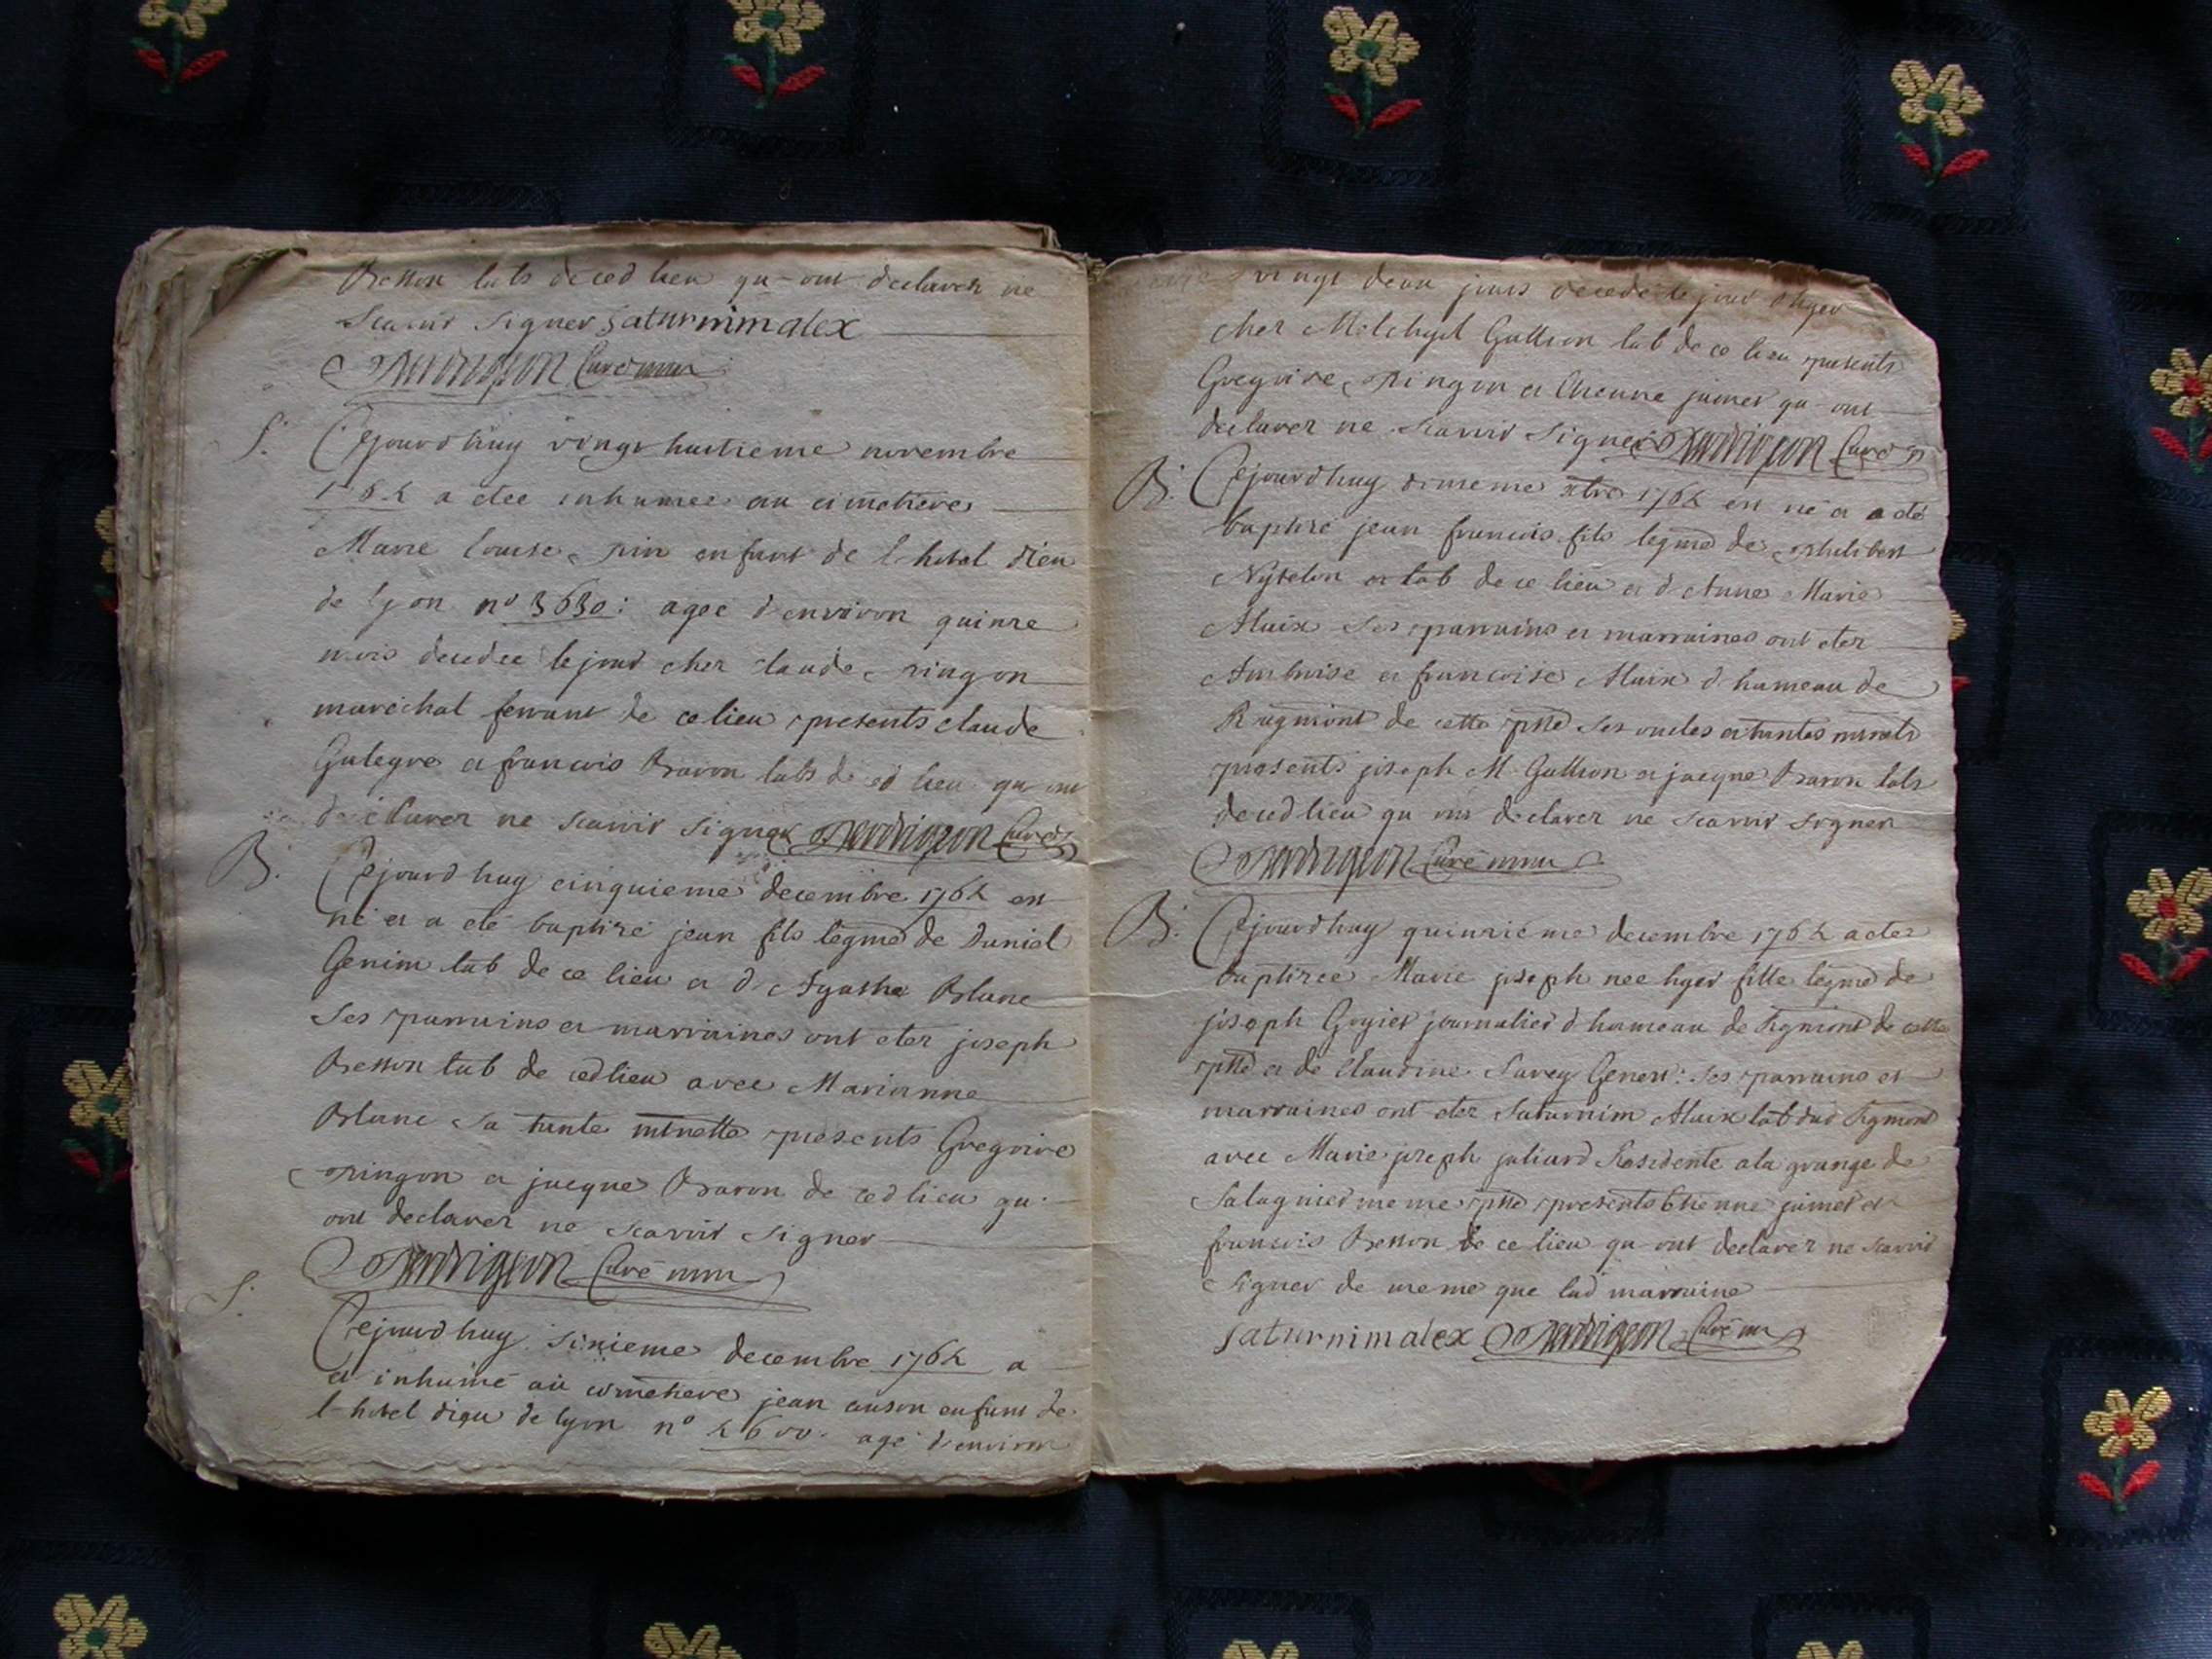 Besson labs de ced lieu qu ont declarer ne
scavoir signer saturnim alex
curé mmu
S. Cejourd huy vingt huitieme novembre
176 a etee inhumee au cimetiere
Marie louise pin enfant de l hotel dieu
de lyon n° 3630: agee d environ quinze
mois decedee le jour cher claude pingon
maréchal ferrant de ce lieu presents claude
Galegre et francois Baron labs de ced lieu qu ont
declarer ne scavoir signer curé
B. Cejourd huy cinquieme decembre 1762 est
né et a eté baptizé jean fils legme de Daniel
Genim lab de ce lieu et d Agathe Blanc
ses parrains et marraines ont eter joseph
Besson lab de ced lieu avec Marianne
Blanc sa tante mtnelle presents Gregoire
pingon et jacque Baron de ced lieu qu
ont declarer ne scavoir signer
curé mmu
S. Cejourd huy sixieme decembre 1762 a
et inhumé au cimetiere jean enfant de
l hotel dieu de lyon n° agé d environ
vingt deux jours decedé le jour d hyer
cher Melchyel Gallion lab de ce lieu presents
Gregoire pingon et Etienne jamet qu ont
declarer ne scavoir signer curé
B. Cejourd huy xbre 1762 est né et a eté
baptizé jean francois fils legme de philibert
lab de ce lieu et d Anne Marie
Aluix ses parrains et marraines ont eter
Ambroise et francoise Aluix d hameau de
de cette psse ses oncles et tantes
presents joseph M Gallion et jacque Baron labs
de ced lieu qu ont declarer ne scavoir signer
curé mmu
B. Cejourd huy quinzieme decembre 1762 a eter
baptizee Marie joseph nee hyer fille legme de
joseph journalier d hameau de de cette
psse et de Claudine Savey Genest: ses parrains et
marraines ont eter Saturnim Aluix lab dud
avec Marie joseph juliard Residente a la grange de
Salagnier meme psse presents Etienne jamet et
francois Besson de ce lieu qu ont declarer ne scavoir
signer de meme que lad marraine
saturnim alex curé mu